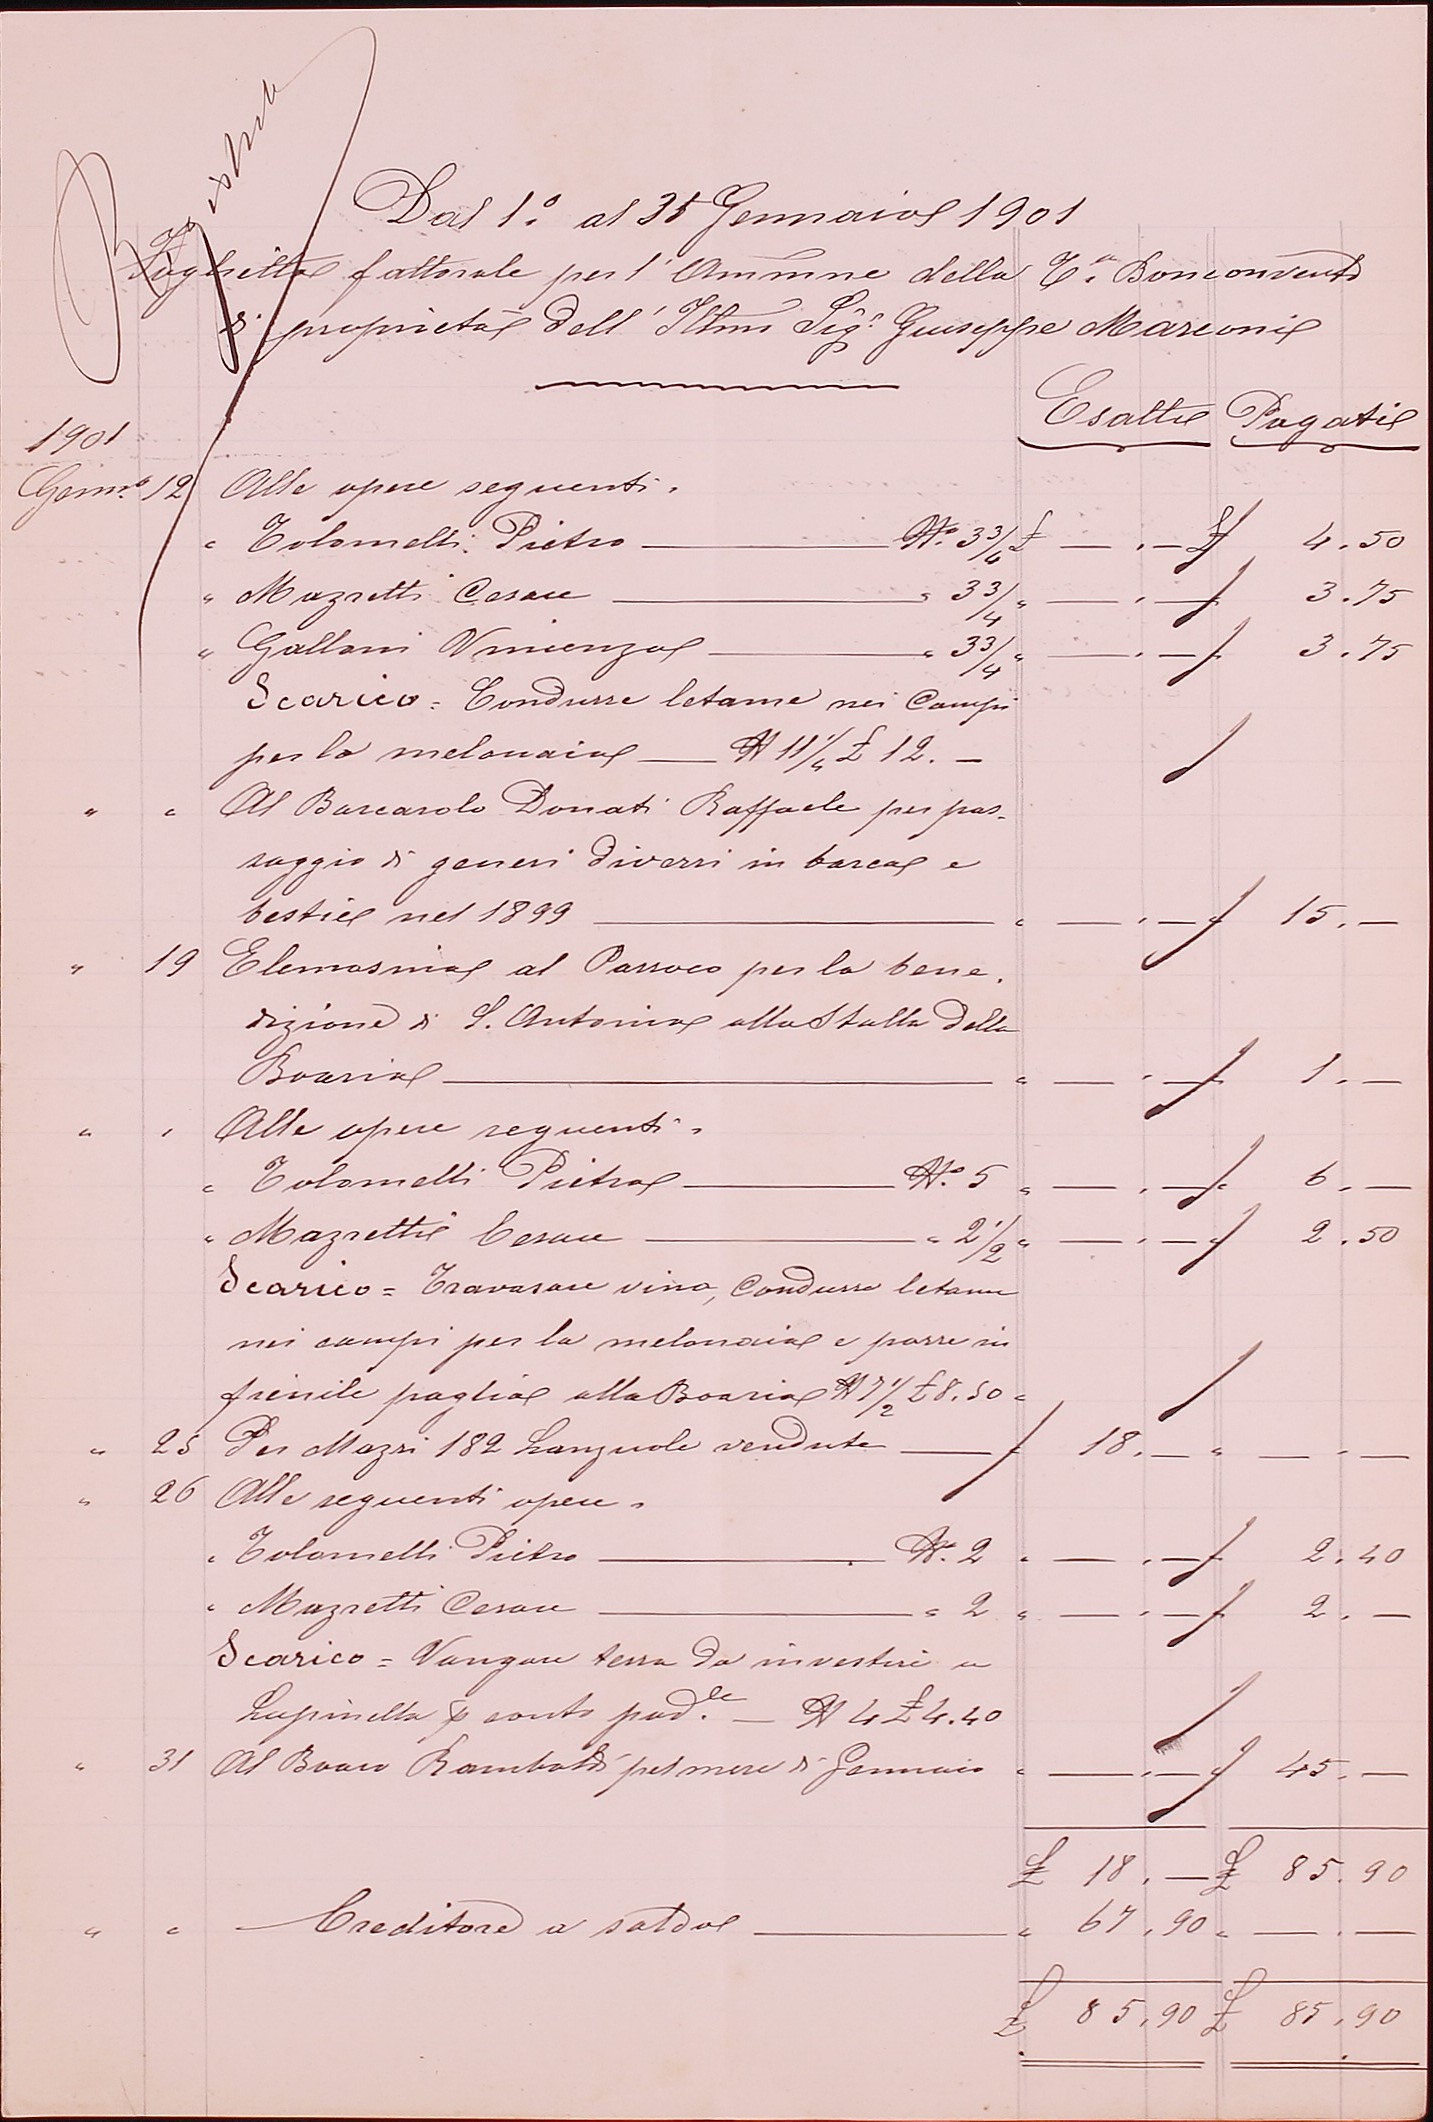 Registrato
Dal 1.° al 31 Gennaio 1901
Foglietto fattorale per l'Ammne della T.ta Bonconvento
di proprietà dell'Illmo Sigr Giuseppe Marconi
Esatti Pagati
1901
Genn.o 12 Alle opere seguenti.
" Tolomelli Pietro N.° 3 3/4 £ — . — £ 4.50
" Mazzetti Cesare " 3 3/4 " — . — " 3.75
" Galloni Vincenzo " 3 3/4 " — . — " 3.75
Scarico = Condurre letame nei Campi
per la melonaia — N 11 1/4 £ 12. —
" " Al Barcarolo Donati Raffaele per pas-
saggio di generi diversi in barca e
bestie nel 1899 " — . — " 15. —
" 19 Elemosina al Parroco per la bene-
dizione di S. Antonio alla Stalla della
Boaria " — . — " 1. —
" " Alle opere seguenti.
" Tolomelli Pietro N.° 5 " — . — " 6. —
" Mazzetti Cesare " 2 1/2 " — . — " 2.50
Scarico = Travasare vino, condurre letame
nei campi per la melonaia e porre in
fienile paglia alla Boaria N 7 1/2 £ 8.50 "
" 25 Per Mazzi 182 vendute — " 18. — " — . —
" 26 Alle seguenti opere.
" Tolomelli Pietro N.° 2 " — . — " 2.40
" Mazzetti Cesare " 2 " — . — " 2. —
Scarico = Vangare terra da investire a
Lupinella p conto pad.le — N 4 £ 4.40
" 31 Al Boaro Rambaldi pel mese di Gennaio " — . — " 45. —
£ 18. — £ 85.90
" " Creditore a saldo " 67.90 " — . —
£ 85.90 £ 85.90